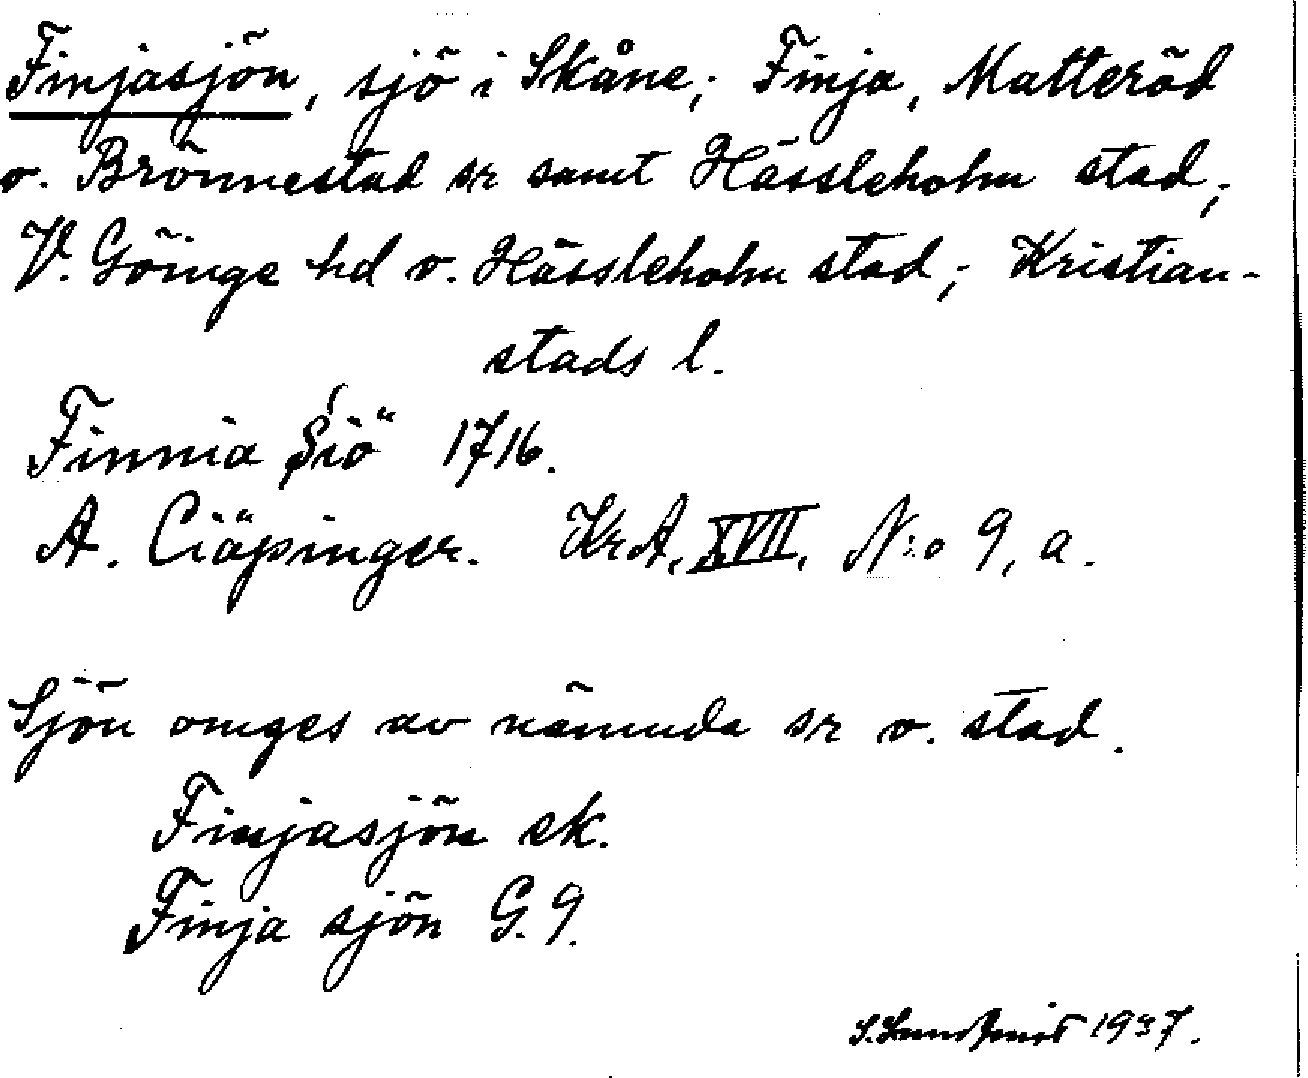 Finjasjön, sjö i Skåne; Finja, Matteröd
o. Brönnestad sr samt Hässleholm stad;
V. Göinge hd o. Hässleholm stad; Kristian-
stads l.
Finnia Siö 1716.
A. Ciöpinger. KrA, XVII, N:o 9, a.
Sjön omges av nämnda sr o. stad.
Finjasjön ek.
Finja sjön G. 9.
S. Lundquist 1937.